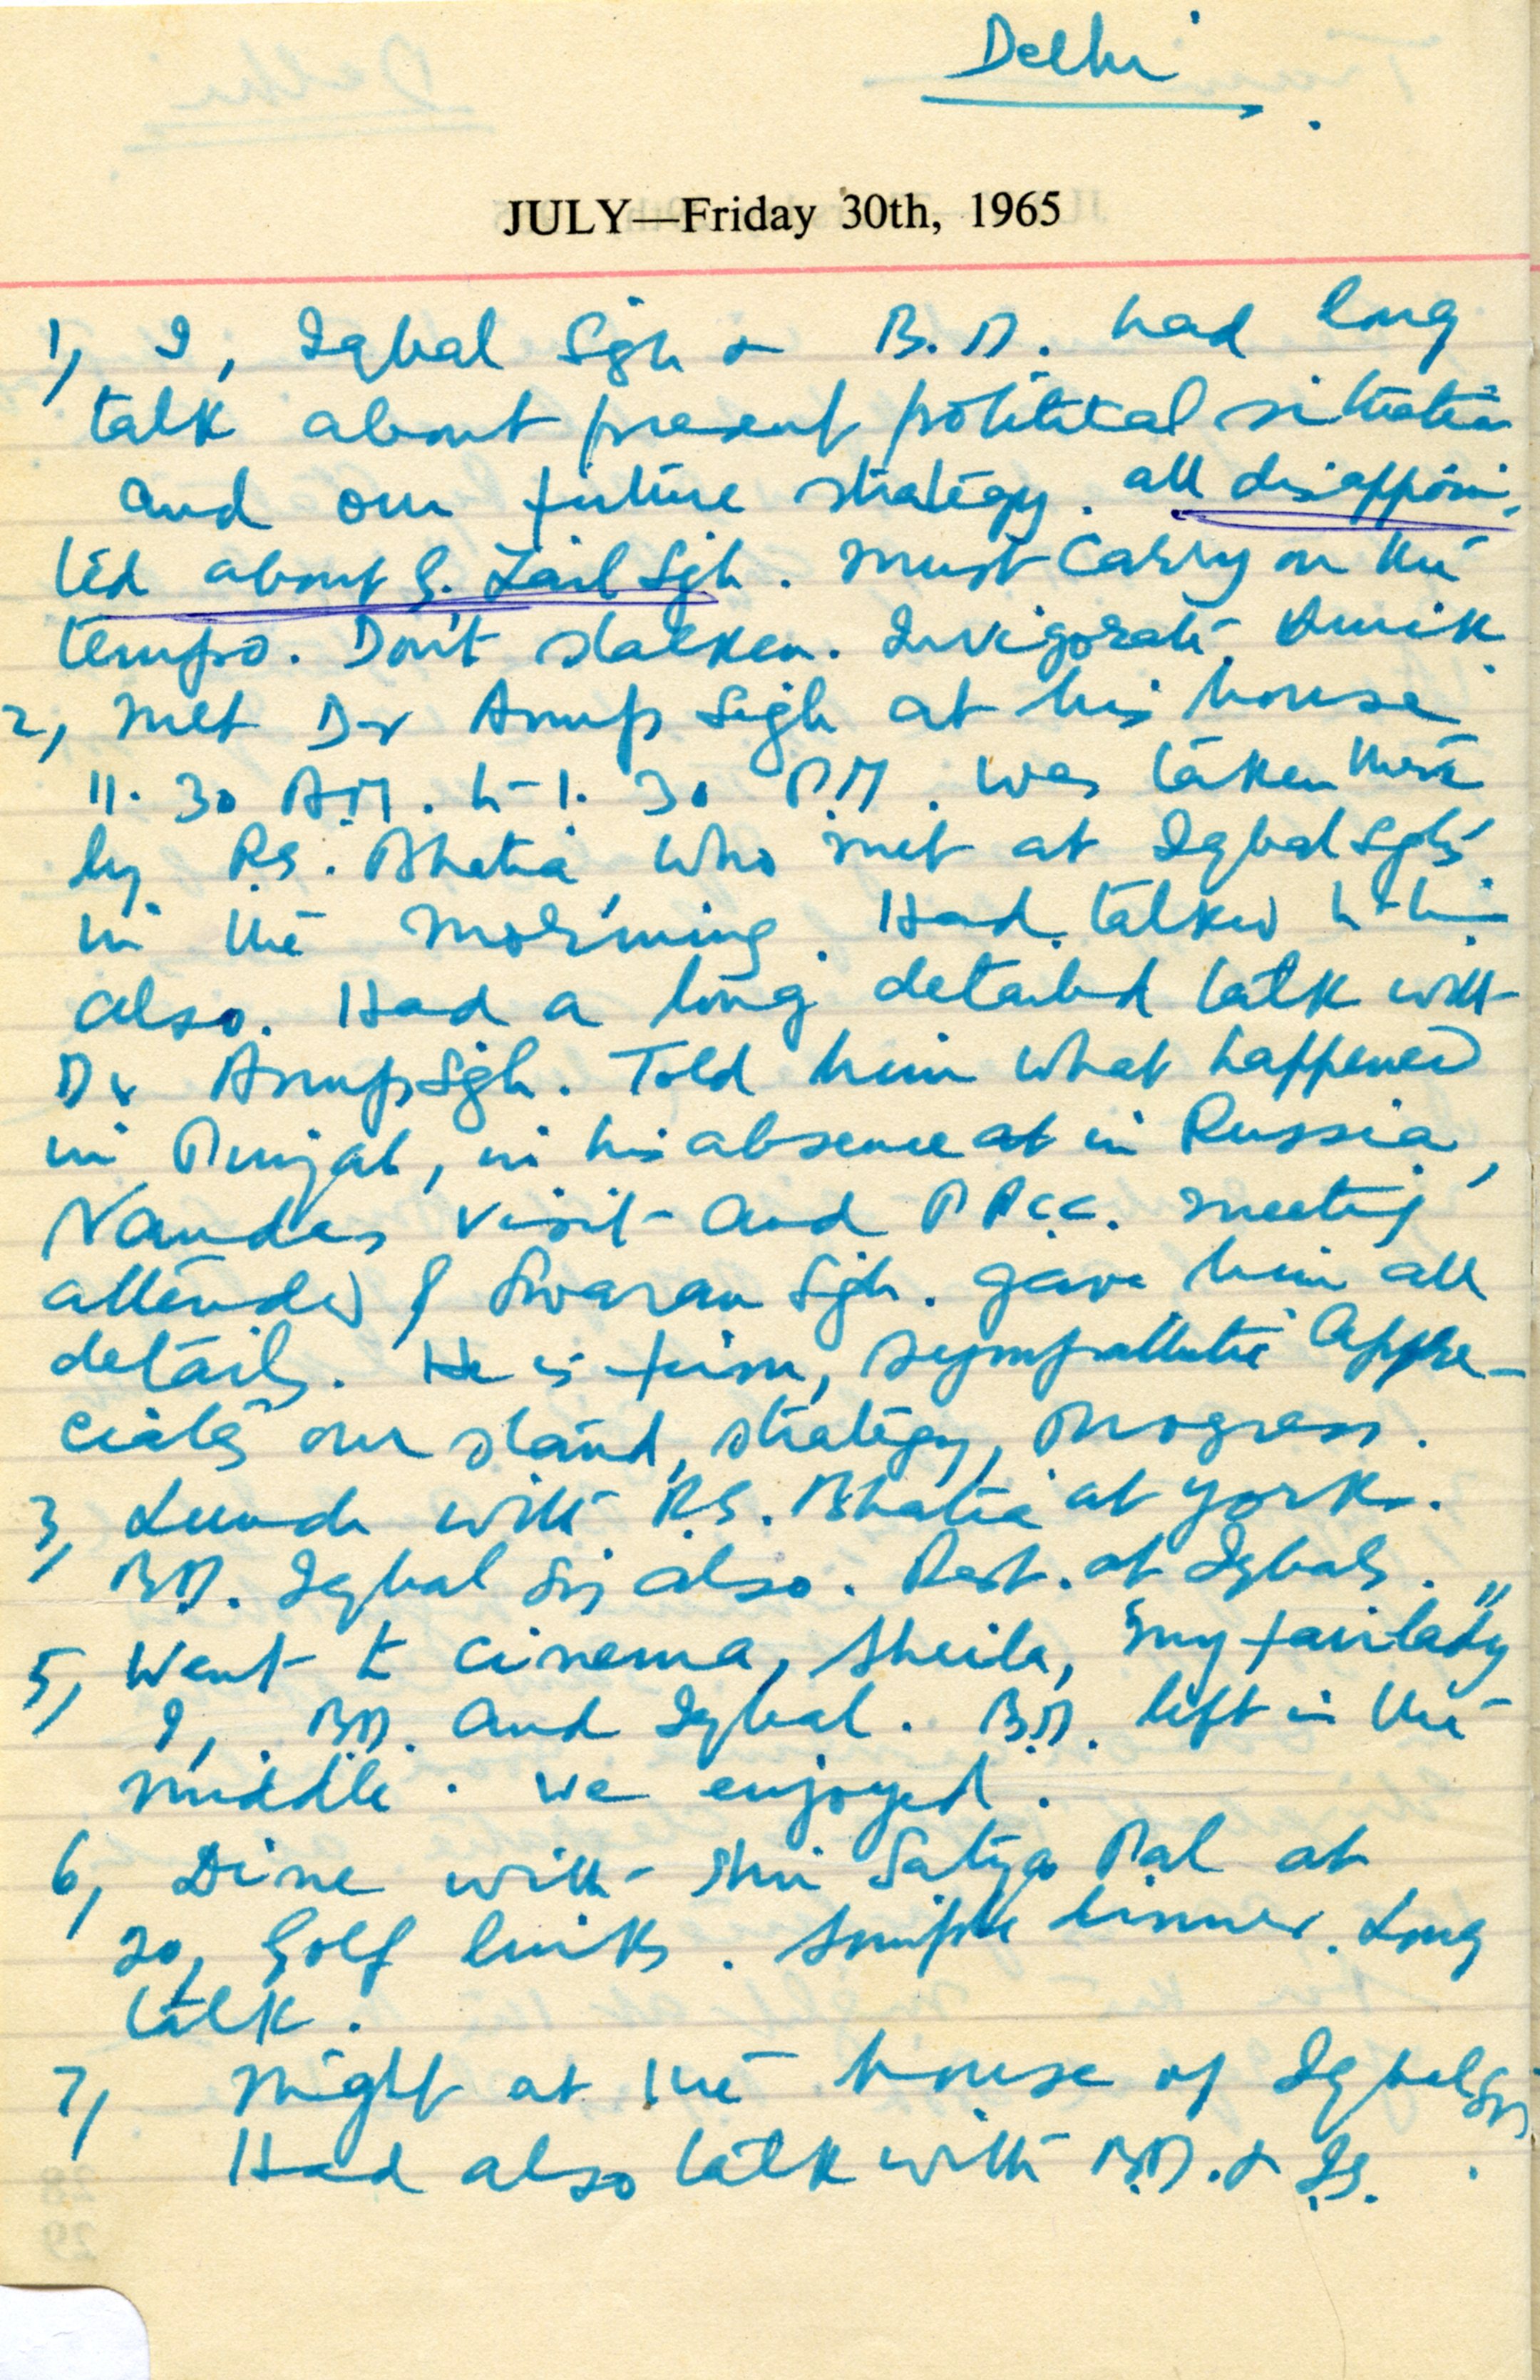 Delhi
JULY—Friday 30th, 1965
1, I, Iqbal Sgh & B.D. had long
talk about present political situation
and our future strategy. all disappoin-
ted about G. Zail Sgh. Must carry on the
tempo. Don't slacken. Invigorate
2, Met Dr Anup Sigh at his house
11.30 A.M. to 1.30 P.M. Was taken there
by R.S. Bhatia who met at Iqbal Sgh's
in the morning. Had talked to him
also. Had a long detailed talk with
Dr Anup Sgh. Told him what happened
in Punjab, in his absence at in Russia,
Nandas visit and P.P.C.C. meeting
attended of Swaran Sgh. gave him all
details. He is firm, sympathetic appre-
ciates our stand, strategy, progress.
3, Lunch with R.S. Bhatia at york.
B.D. Iqbal Sin also. Rest. at Iqbals.
5, Went to cinema, Sheila, "my fair lady"
I, B.D. and Iqbal. B.D. left in the
middle. we enjoyed.
6, Dine with Shri Satya Pal at
20, Golf links. Simple dinner. Long
talk.
7, Night at the house of Iqbal Sin
Had also talk with B.D. & I.S.